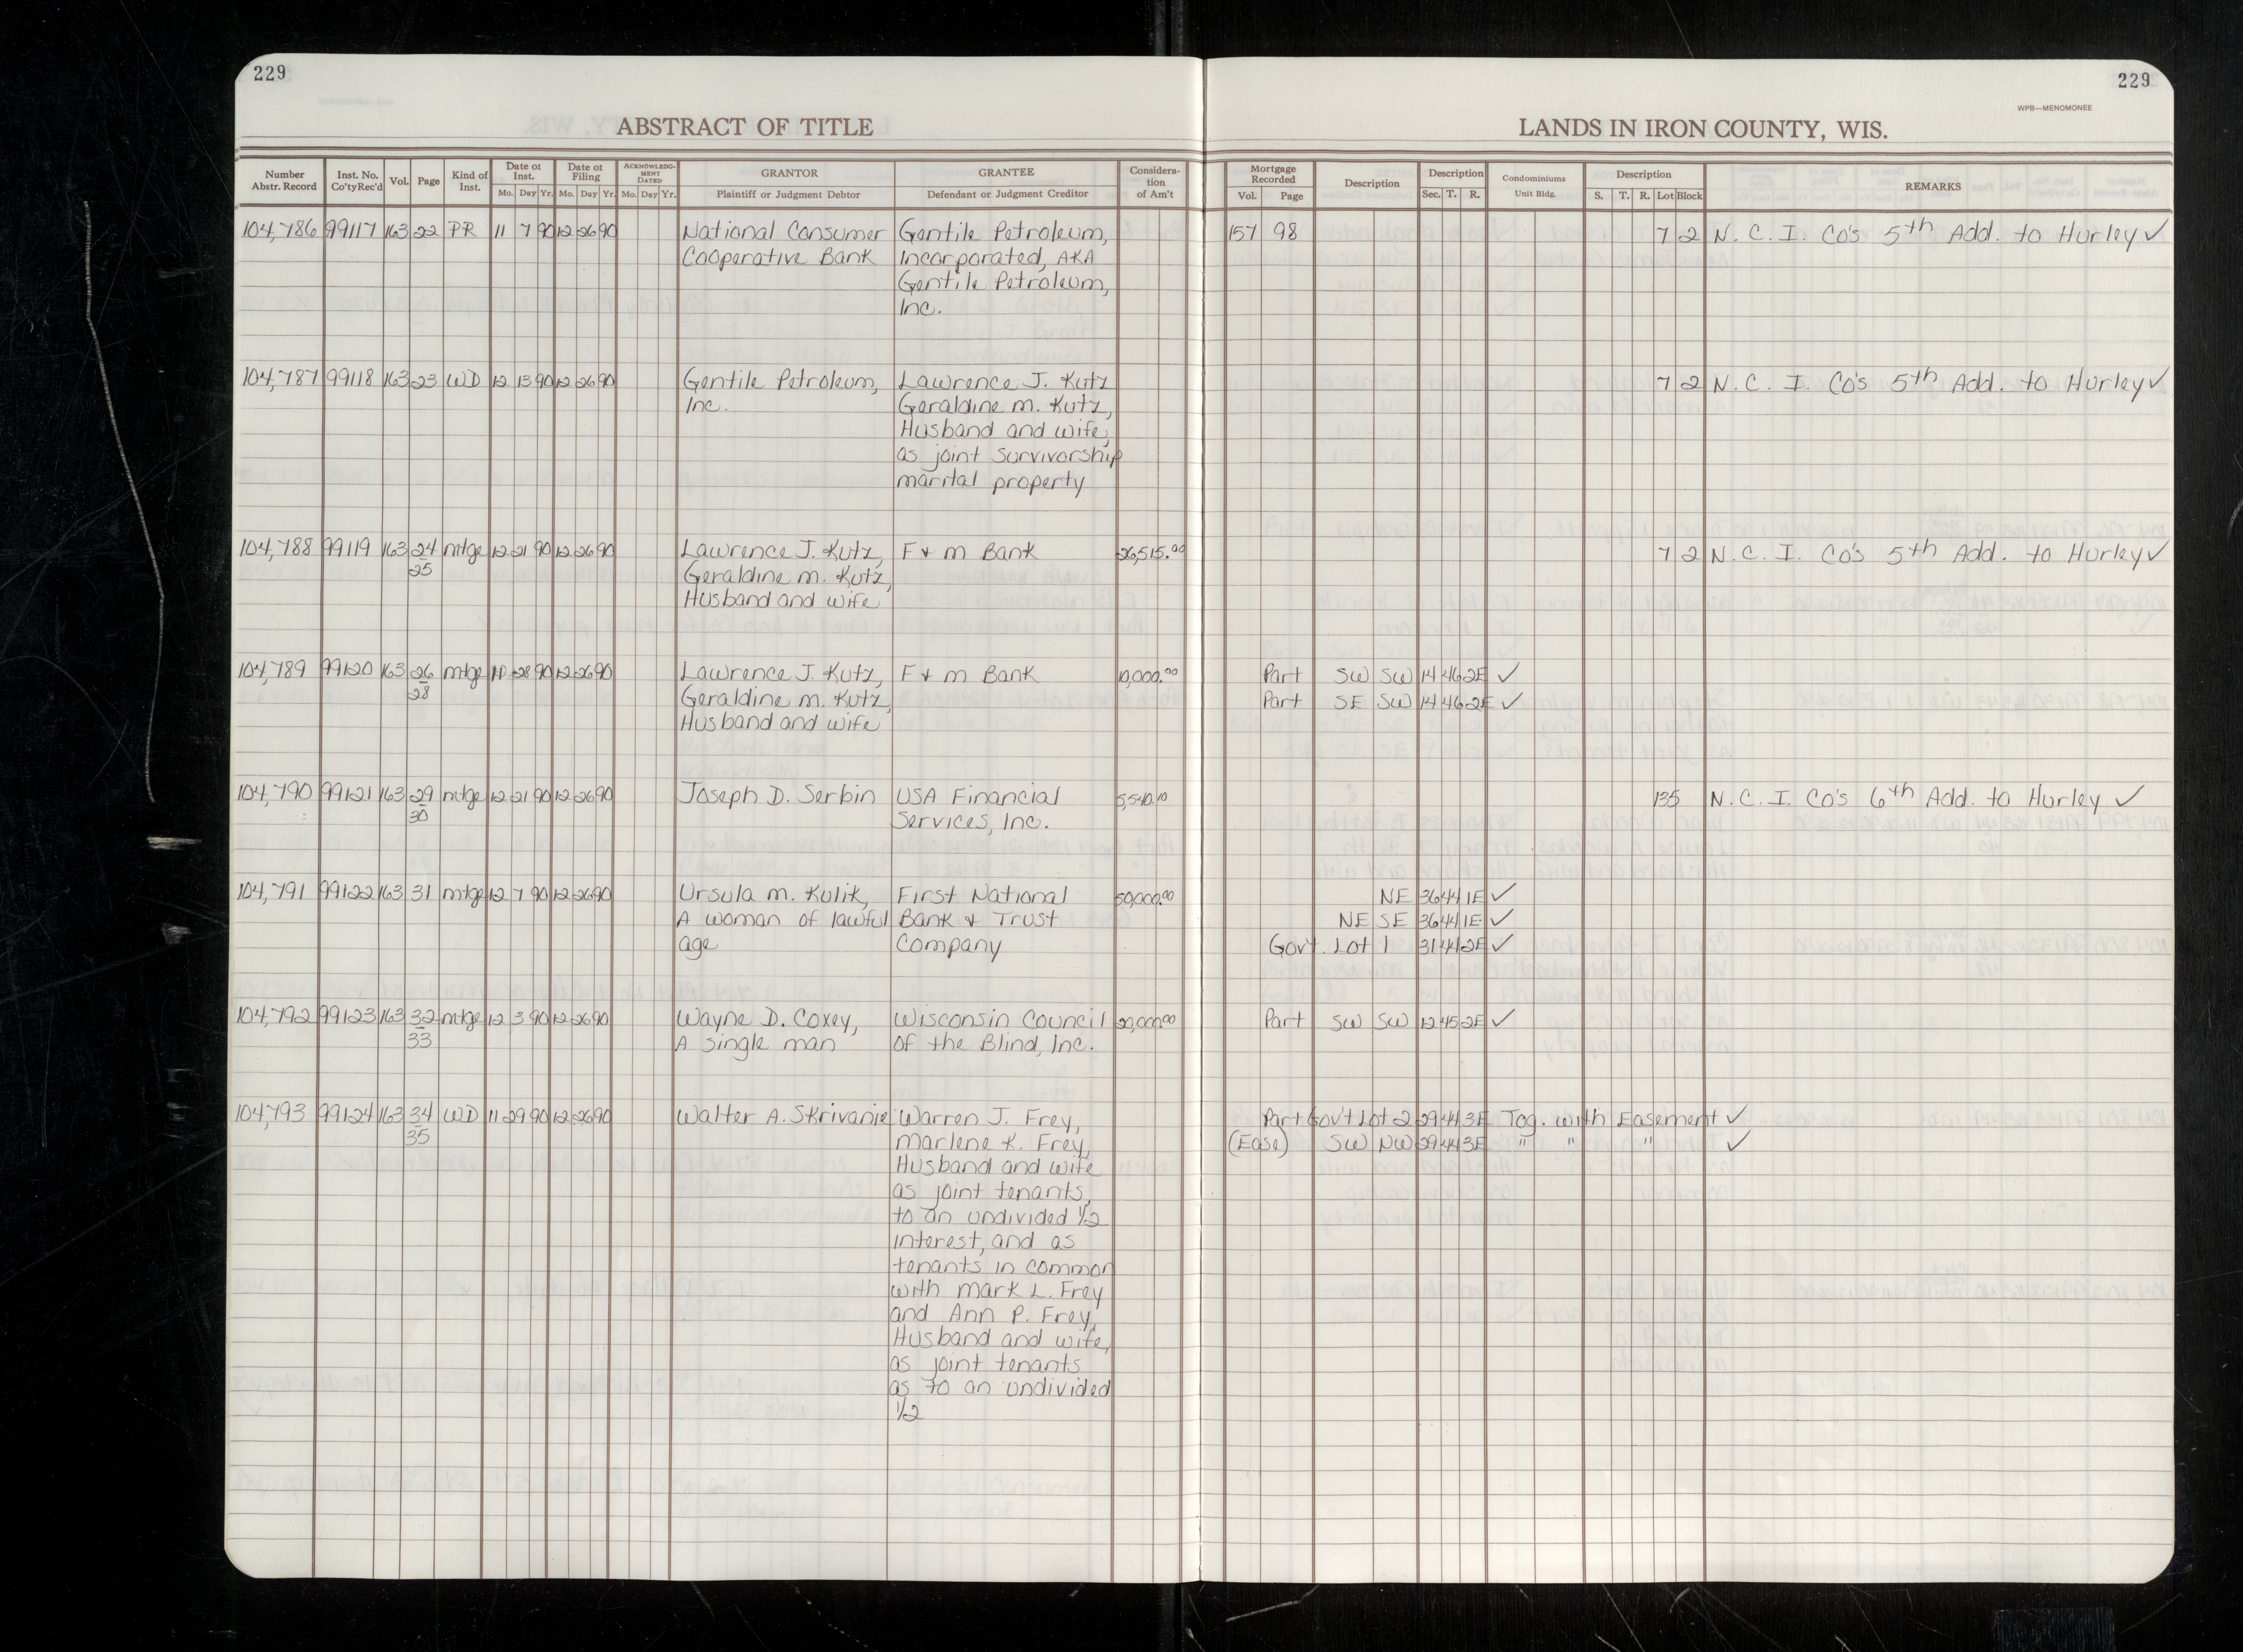 229
229
WPB—MENOMONEE
ABSTRACT OF TITLE
LANDS IN IRON COUNTY, WIS.
Number Abstr. Record Inst. No. Co'tyRec'd Vol. Page Kind of Inst. Date of Inst. Mo. Day Yr. Date of Filing Mo. Day Yr. ACKNOWLEDGMENT DATED Mo. Day Yr. GRANTOR Plaintiff or Judgment Debtor GRANTEE Defendant or Judgment Creditor Consideration of Am't Mortgage Recorded Vol. Page Description Description Sec. T. R. Condominiums Unit Bldg. Description S. T. R. Lot Block REMARKS
104,786 99117 163 22 PR 11 7 90 12 26 90 National Consumer Gentile Petroleum, 157 98 7 2 N. C. I. Co's 5th Add. to Hurley ✓
Cooperative Bank Incorporated, AKA
Gentile Petroleum,
Inc.
104,787 99118 163 23 WD 12 13 90 12 26 90 Gentile Petroleum, Lawrence J. Kutz 7 2 N. C. I. Co's 5th Add. to Hurley ✓
Inc. Geraldine M. Kutz,
Husband and wife,
as joint survivorship
marital property
104,788 99119 163 24 mtge 12 21 90 12 26 90 Lawrence J. Kutz, F & M Bank 26,515.00 7 2 N. C. I. Co's 5th Add. to Hurley ✓
25 Geraldine M. Kutz,
Husband and wife
104,789 99120 163 26 mtge 28 90 12 26 90 Lawrence J. Kutz, F & M Bank 10,000.00 Part SW SW 14 46 2E ✓
28 Geraldine M. Kutz, Part SE SW 14 46 2E ✓
Husband and wife
104,790 99121 163 29 mtge 12 21 90 12 26 90 Joseph D. Serbin USA Financial 5,540.10 135 N. C. I. Co's 6th Add. to Hurley ✓
30 Services, Inc.
104,791 99122 163 31 mtge 12 7 90 12 26 90 Ursula M. Kulik, First National 50,000.00 NE 36 44 1E ✓
A woman of lawful Bank & Trust NE SE 36 44 1E ✓
age Company Gov't. Lot 1 31 44 2E ✓
104,792 99123 163 32 mtge 12 3 90 12 26 90 Wayne D. Coxey, Wisconsin Council 20,000.00 Part SW SW 12 45 2E ✓
33 A single man of the Blind, Inc.
104,793 99124 163 34 WD 11 29 90 12 26 90 Walter A. Skrivanie Warren J. Frey, Part Gov't Lot 2 29 44 3E Tog. with Easement ✓
35 Marlene K. Frey, (Ease) SW NW 29 44 3E " " " ✓
Husband and wife
as joint tenants,
to an undivided 1/2
interest, and as
tenants in common
with Mark L. Frey
and Ann P. Frey,
Husband and wife,
as joint tenants
as to an undivided
1/2